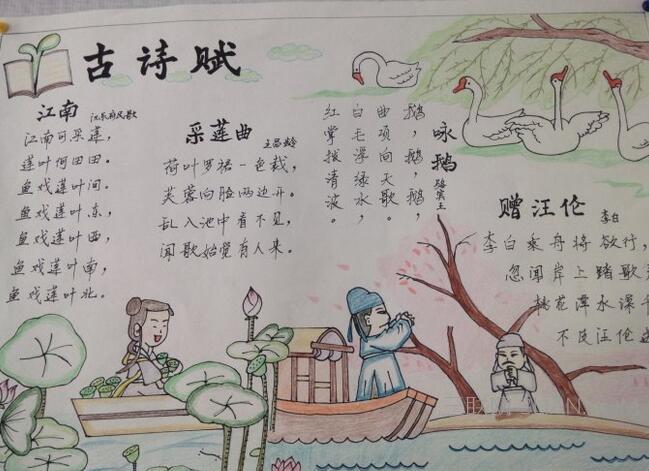 古诗赋
江南 汉乐府民歌
江南可采莲，
莲叶何田田。
鱼戏莲叶间。
鱼戏莲叶东，
鱼戏莲叶西，
鱼戏莲叶南，
鱼戏莲叶北。
采莲曲
王昌龄
荷叶罗裙一色裁，
芙蓉向脸两边开。
乱入池中看不见，
闻歌始觉有人来。
咏鹅
骆宾王
鹅，鹅，鹅，
曲项向天歌。
白毛浮绿水，
红掌拨清波。
赠汪伦 李白
李白乘舟将欲行，
忽闻岸上踏歌
桃花潭水深千
不及汪伦送